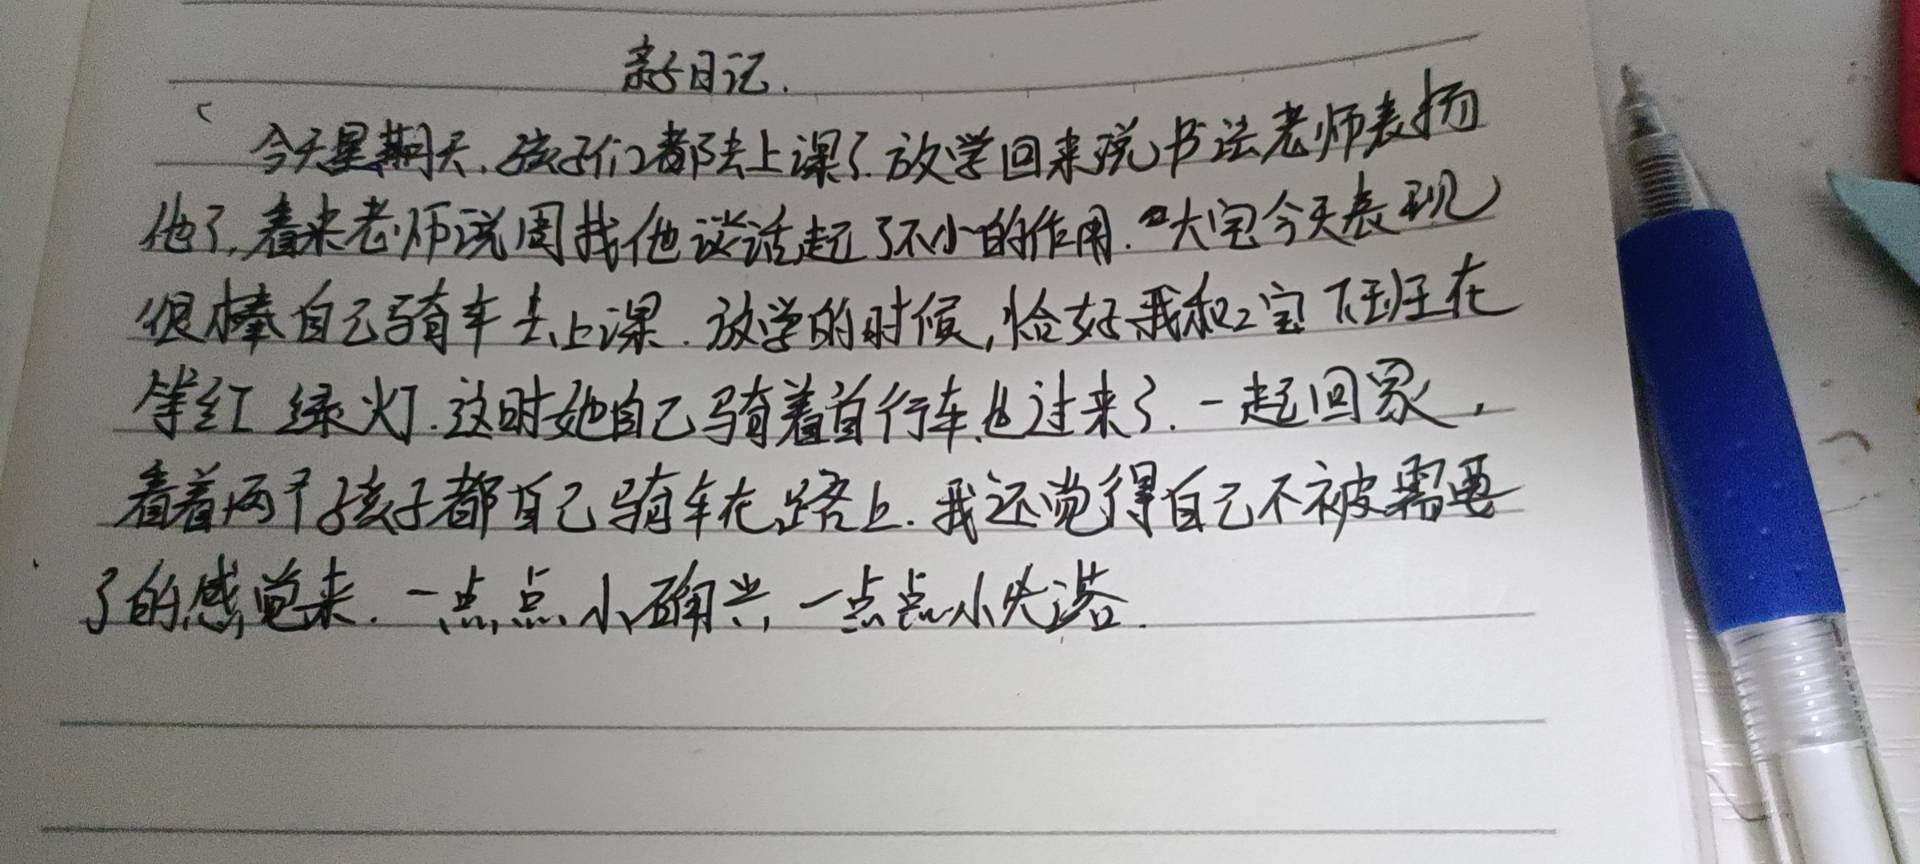 亲子日记.
今天星期天,孩子们都去上课了.放学回来说书法老师表扬
他了,看来老师说周找他谈话起了不小的作用.大宝今天表现
很棒自己骑车去上课.放学的时候,恰好我和二宝下班在
等红绿灯.这时她自己骑着自行车也过来了.一起回家,
看着两个孩子都自己骑车在路上.我还觉得自己不被需要
了的感觉来.一点点小确兴,一点点小失落.